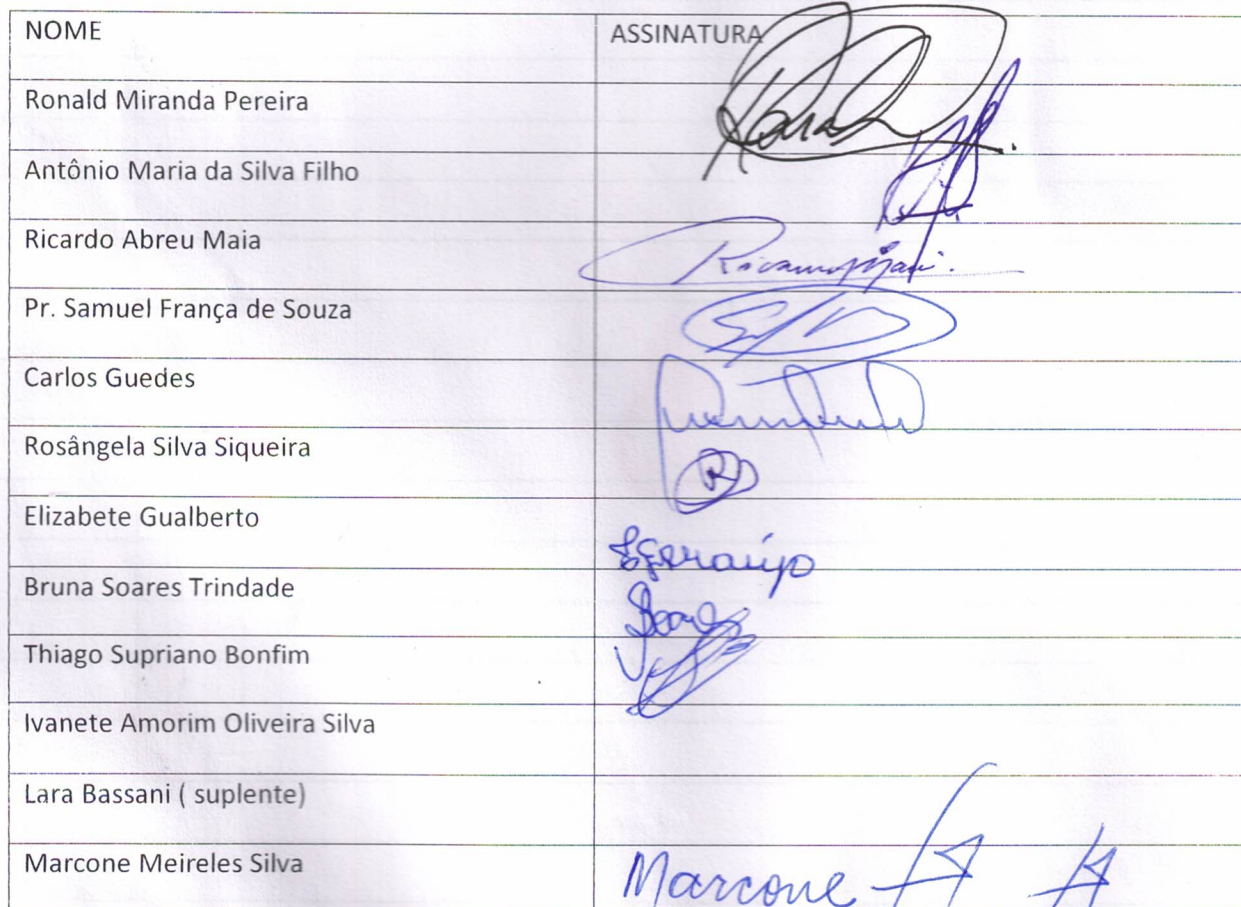 NOME ASSINATURA
Ronald Miranda Pereira
Antônio Maria da Silva Filho
Ricardo Abreu Maia
Pr. Samuel França de Souza
Carlos Guedes
Rosângela Silva Siqueira
Elizabete Gualberto
Bruna Soares Trindade
Thiago Supriano Bonfim
Ivanete Amorim Oliveira Silva
Lara Bassani ( suplente)
Marcone Meireles Silva Marcone